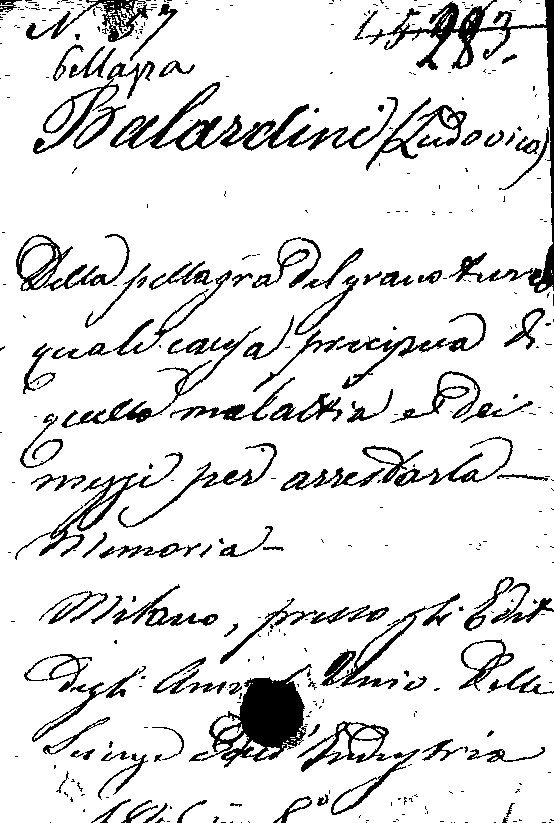 N. 57
283.
Pellagra
Balardini (Ludovico)
Della pellagra del grano turco
quale causa precipua di
quella malattia e dei
mezzi per arrestarla —
Memoria —
Milano, presso gli Edit
degli Annali Univ. delle
Scienze ed Industria
1845 in 8°